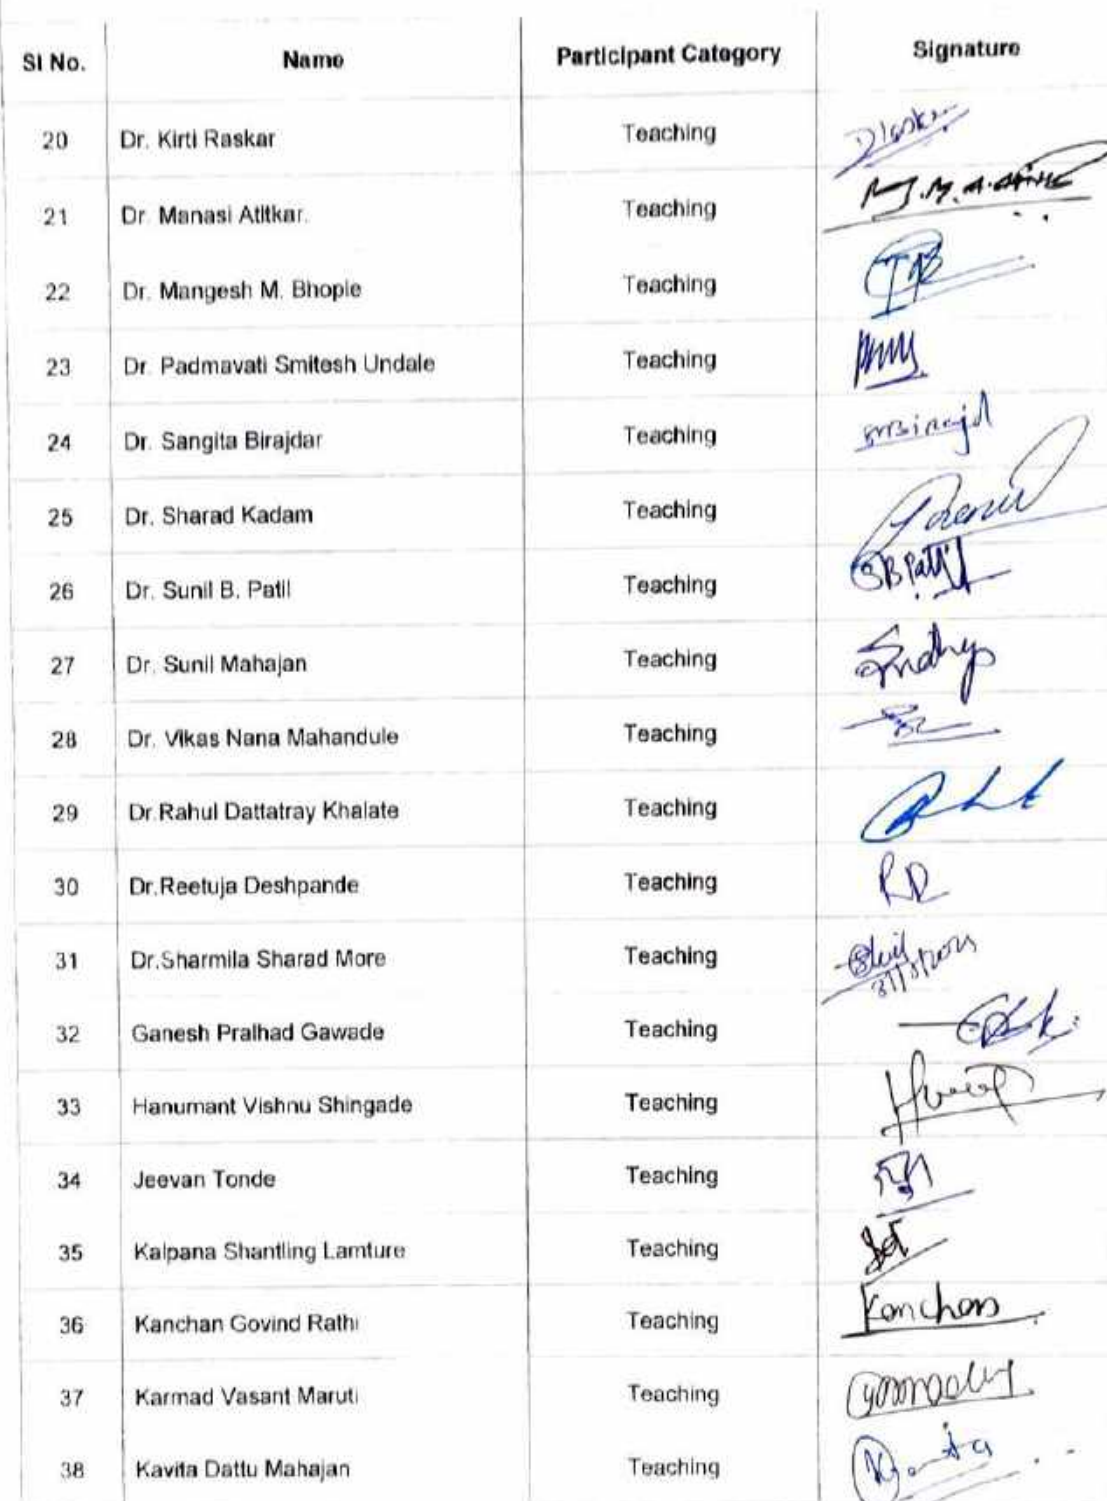 Sl No. Name Participant Category Signature
20 Dr. Kirti Raskar Teaching
21 Dr. Manasi Atitkar. Teaching
22 Dr. Mangesh M. Bhople Teaching
23 Dr. Padmavati Smitesh Undale Teaching
24 Dr. Sangita Birajdar Teaching
25 Dr. Sharad Kadam Teaching
26 Dr. Sunil B. Patil Teaching SBPatil
27 Dr. Sunil Mahajan Teaching
28 Dr. Vikas Nana Mahandule Teaching
29 Dr.Rahul Dattatray Khalate Teaching
30 Dr.Reetuja Deshpande Teaching RD
31 Dr.Sharmila Sharad More Teaching
32 Ganesh Pralhad Gawade Teaching
33 Hanumant Vishnu Shingade Teaching
34 Jeevan Tonde Teaching
35 Kalpana Shantling Lamture Teaching
36 Kanchan Govind Rathi Teaching Kanchan
37 Karmad Vasant Maruti Teaching
38 Kavita Dattu Mahajan Teaching